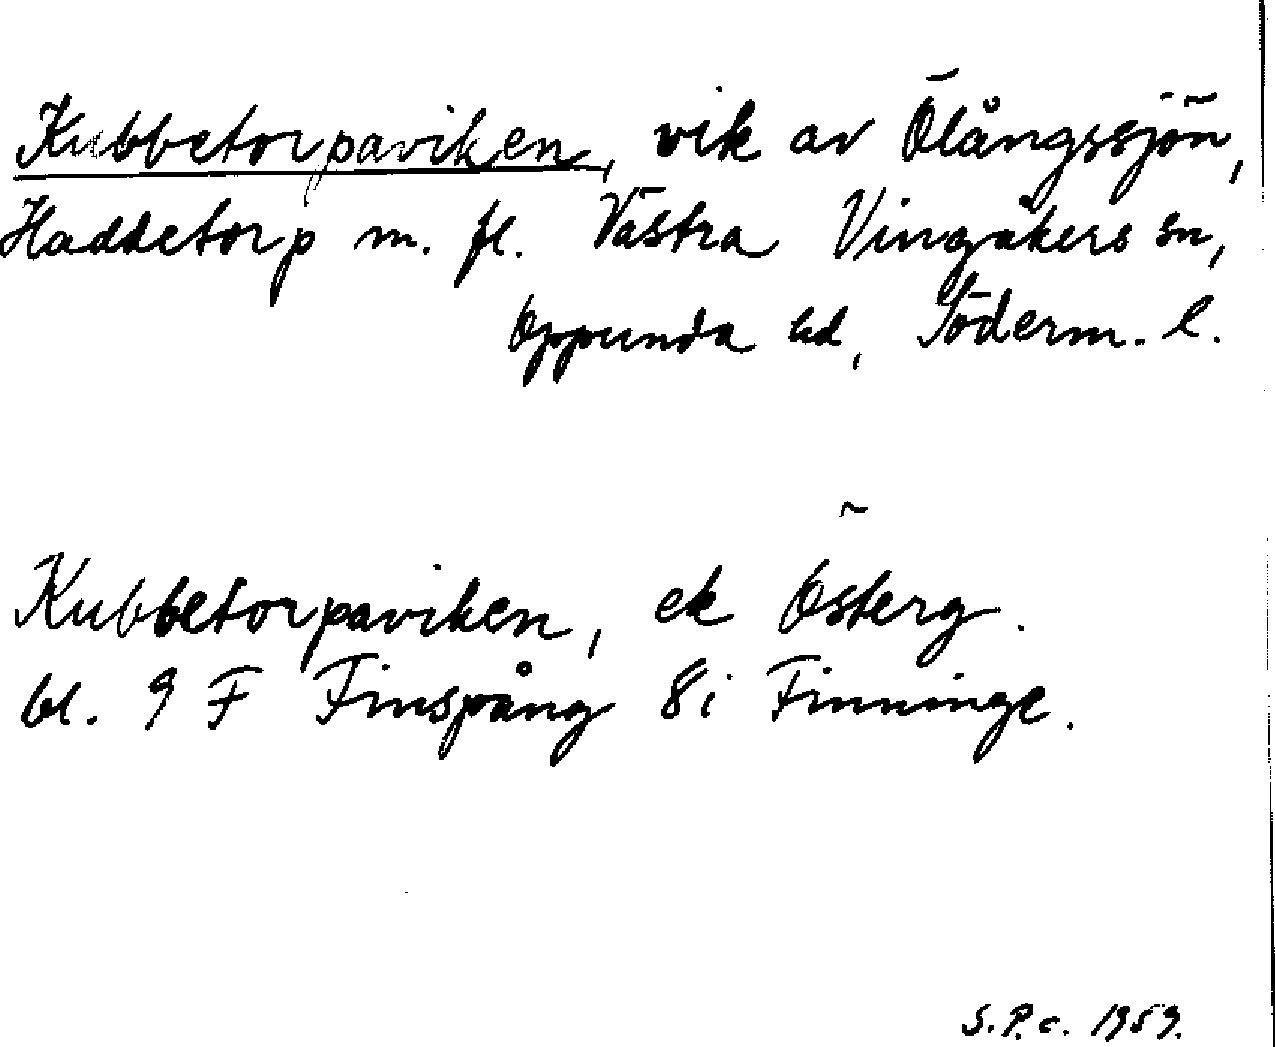 Kubbetorpaviken, vik av Ölångssjön,
Haddetorp m. fl. Västra Vingåkers sn,
Oppunda hd, Söderm. l.
Kubbetorpaviken, ek Österg.
bl. 9 F Finspång 8 i Finninge.
S.P.c. 1959.